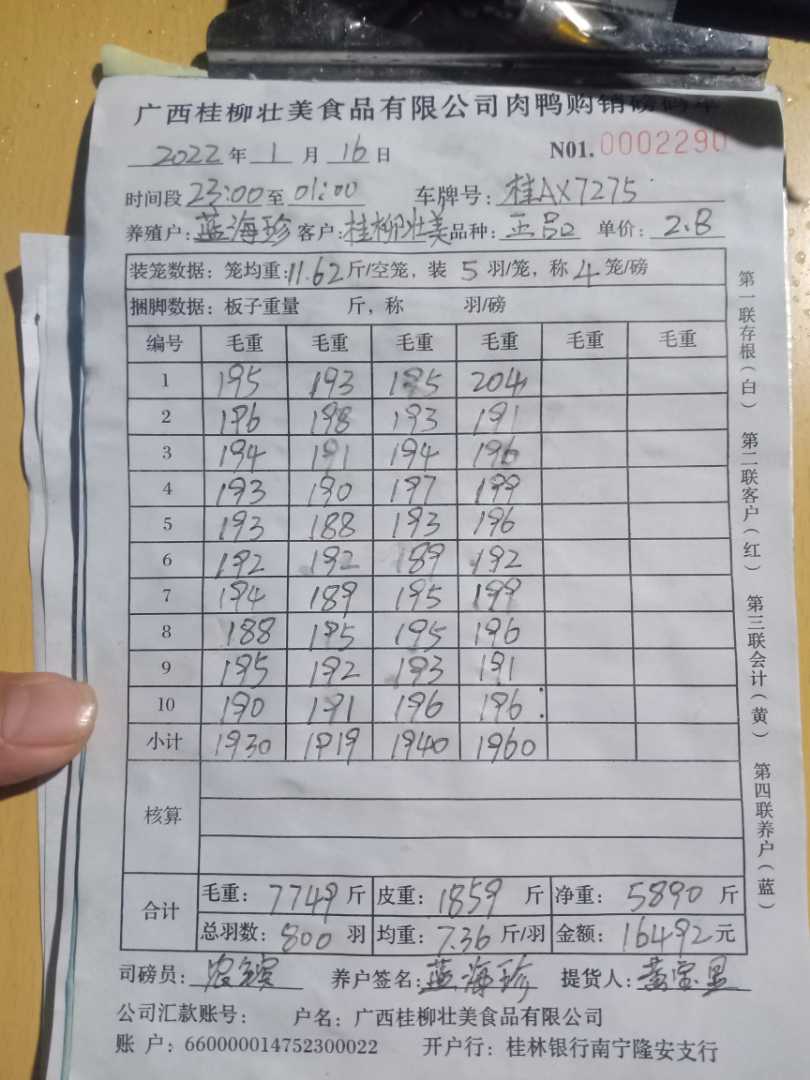 广西桂柳壮美食品有限公司肉鸭购销磅码单
2022年1月16日 N01.0002290
时间段23:00至01:00 车牌号：桂AX7275
养殖户：蓝海珍 客户：桂柳壮美 品种：正品 单价：2.8
装笼数据：笼均重：11.62斤/空笼，装5羽/笼，称4笼/磅
捆脚数据：板子重量 斤，称 羽/磅
编号 毛重 毛重 毛重 毛重 毛重 毛重
1 195 193 195 204
2 196 198 193 191
3 194 191 194 196
4 193 190 197 199
5 193 188 193 196
6 192 192 189 192
7 194 189 195 199
8 188 195 195 196
9 195 192 193 191
10 190 191 196 196
小计 1930 1919 1940 1960
核算
合计 毛重：7749斤 皮重：1859斤 净重：5890斤
总羽数：800羽 均重：7.36斤/羽 金额：16492元
司磅员： 养户签名：蓝海珍 提货人：
公司汇款账号： 户名：广西桂柳壮美食品有限公司
账 户：660000014752300022 开户行：桂林银行南宁隆安支行
第一联存根（白） 第二联客户（红） 第三联会计（黄） 第四联养户（蓝）